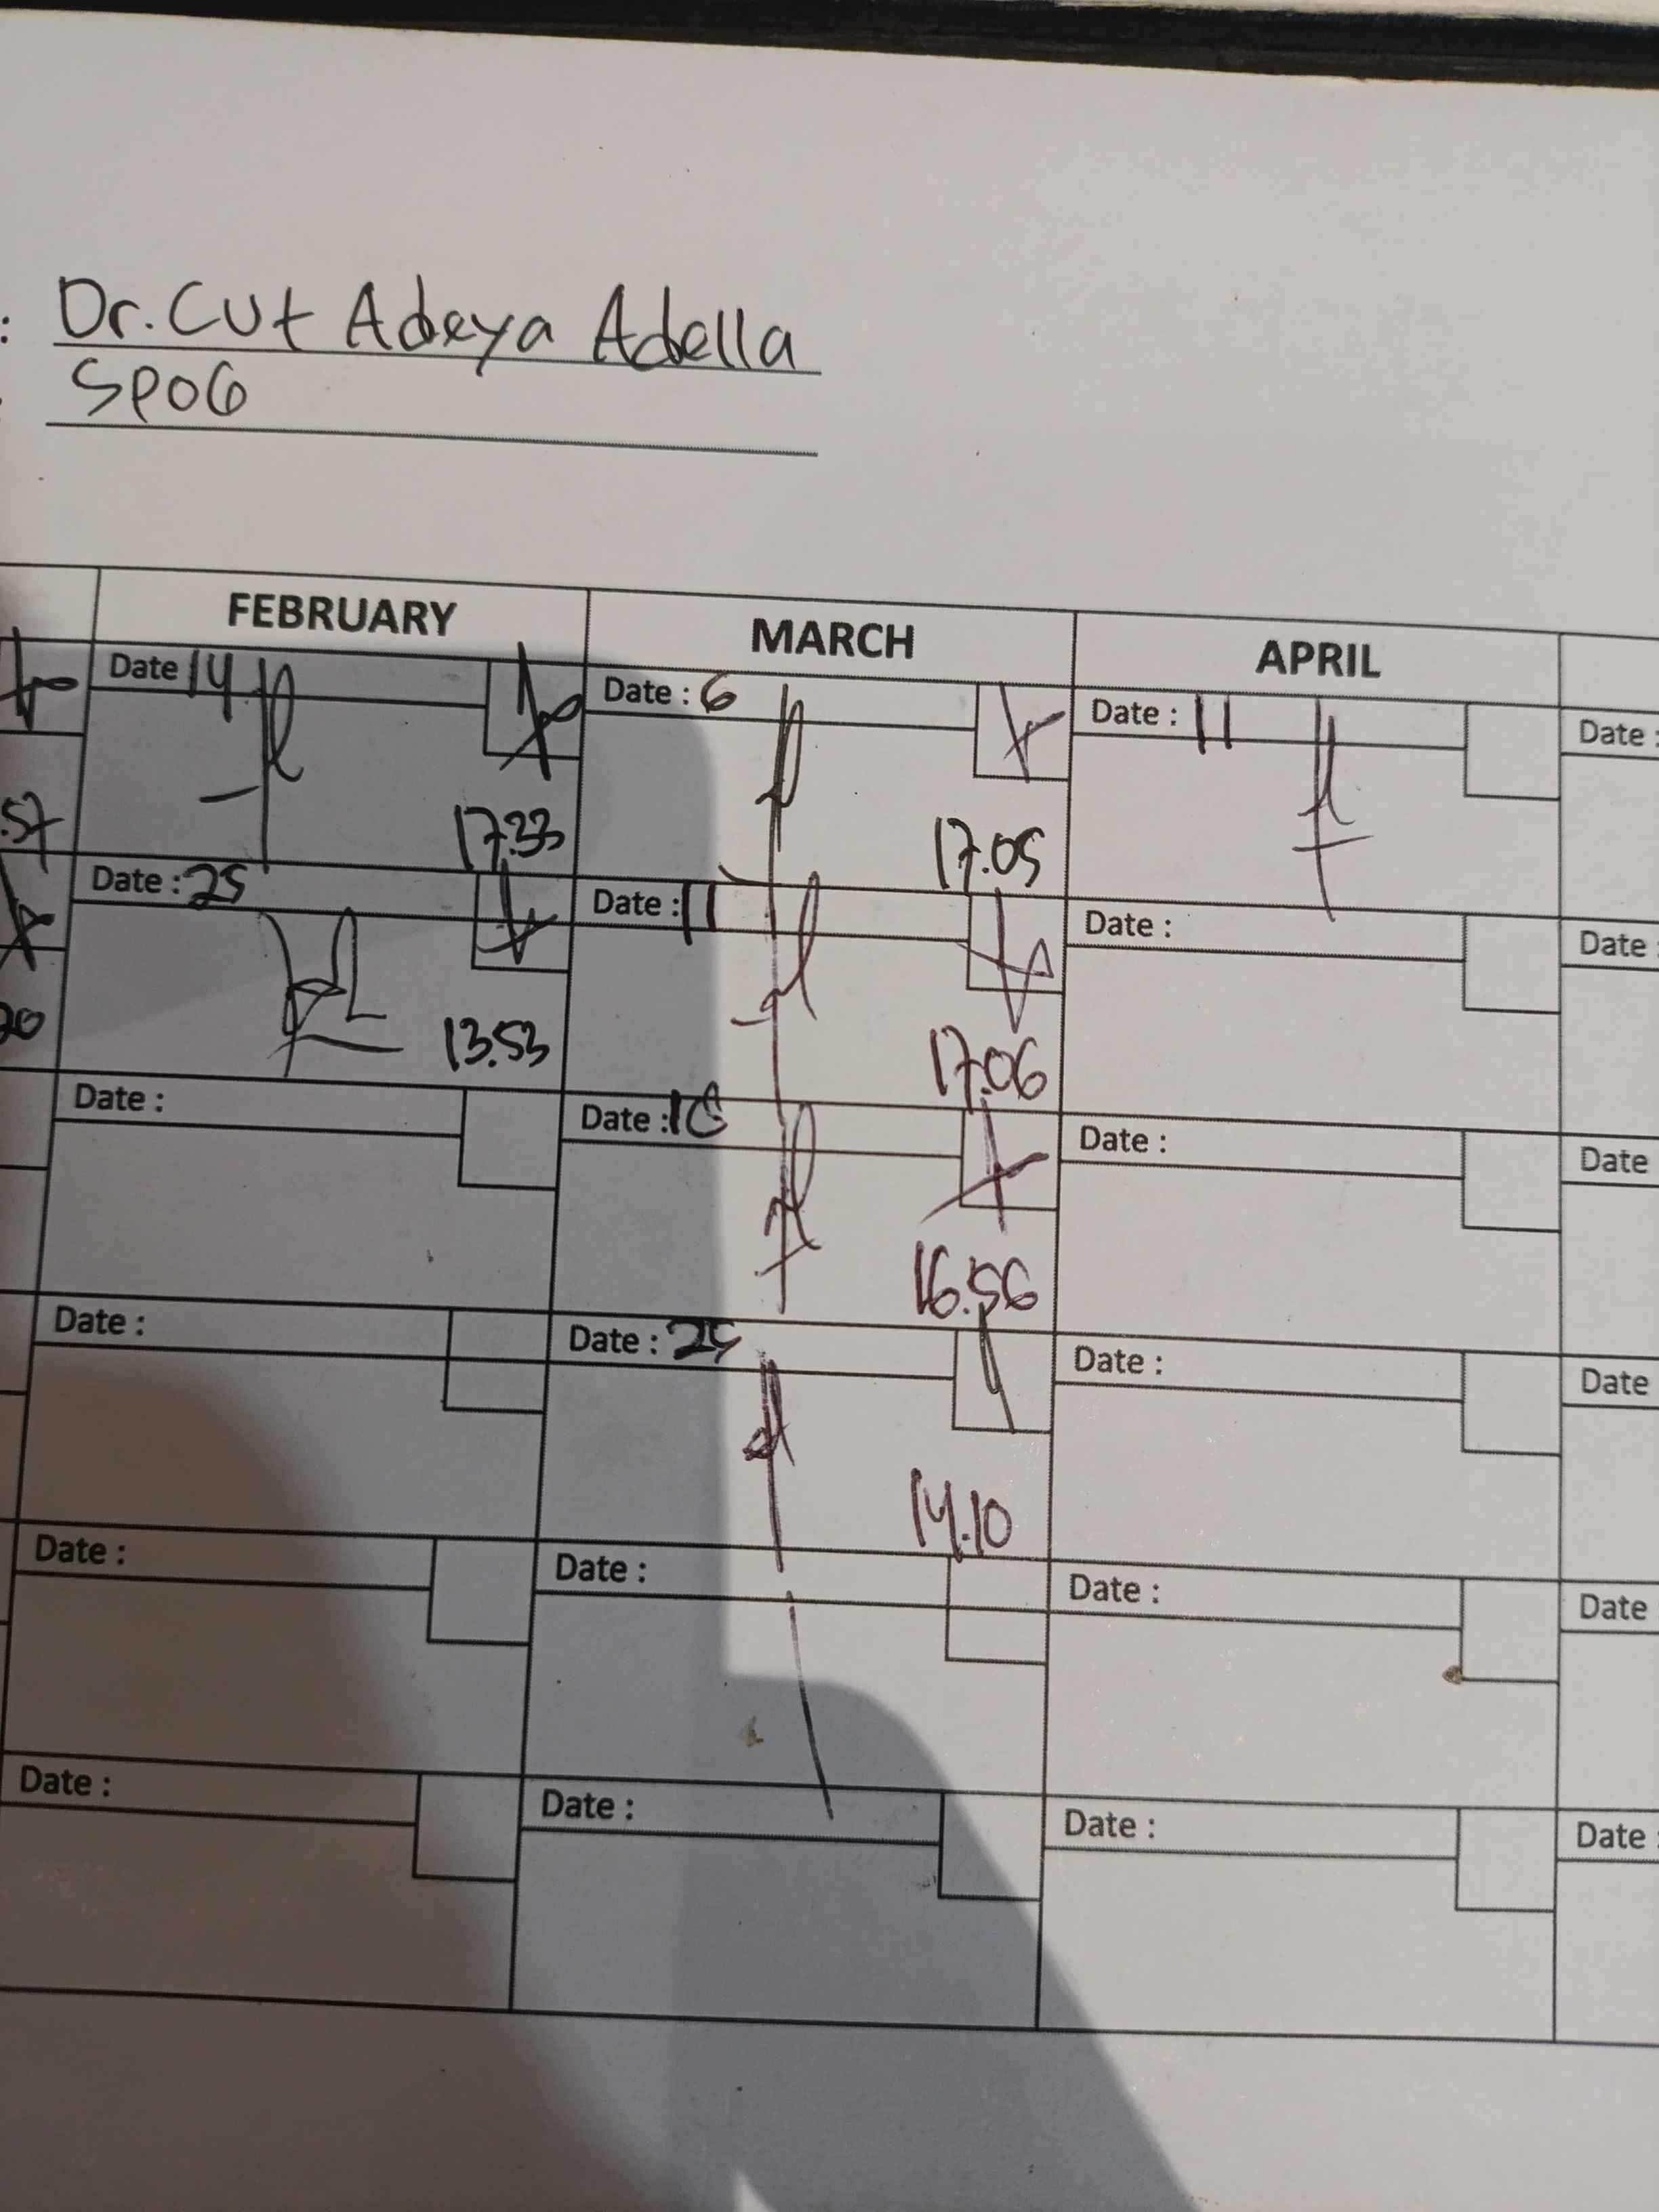 : Dr. Cut Adeya Adella
SPOG
FEBRUARY MARCH APRIL
Date 14 Date : 6 Date : 11 Date :
.57 17.33 17.05
Date : 25 Date : 11 Date : Date :
20 13.53 17.06
Date : Date : Date : Date
16.56
Date : Date : 25 Date : Date
14.10
Date : Date : Date : Date
Date : Date : Date : Date :